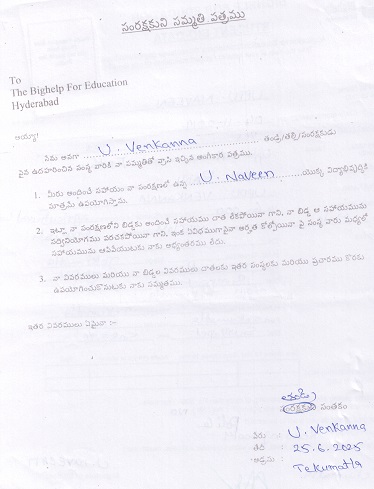 సంరక్షకుని సమ్మతి పత్రము
To
The Bighelp For Education
Hyderabad
అయ్యా!
నేను అనగా U. Venkanna తండ్రి/తల్లి/సంరక్షకుడు
పైన ఉదహరించిన సంస్థ వారికి నా సమ్మతితో వ్రాసి ఇచ్చిన అంగీకార పత్రము.
1. మీరు అందించే సహాయం నా సంరక్షణలో ఉన్న U. Naveen యొక్క విద్యాభివృద్ధికి
మాత్రమే ఉపయోగిస్తాను.
2. ఇట్లా నా సంరక్షణలోని బిడ్డకు అందించే సహాయము చాత లేకపోయినా గాని, నా బిడ్డ ఆ సహాయమును
సద్వినియోగము పరచకపోయినా గాని, ఇంక ఏవిధముగానైనా అర్హత కోల్పోయినా పై సంస్థ వారు మధ్యలో
సహాయమును ఆపివేయుటకు నాకు అభ్యంతరము లేదు.
3. నా వివరములు మరియు నా బిడ్డల వివరములు దాతలకు ఇతర సంస్థలకు మరియు ప్రచారము కొరకు
ఉపయోగించుకొనుటకు నాకు సమ్మతము.
ఇతర వివరములు ఏమైనా :-
తండ్రి
సంరక్షకుని సంతకం
పేరు : U. Venkanna
తేది : 25.6.2025
అడ్రసు : Tekumatla